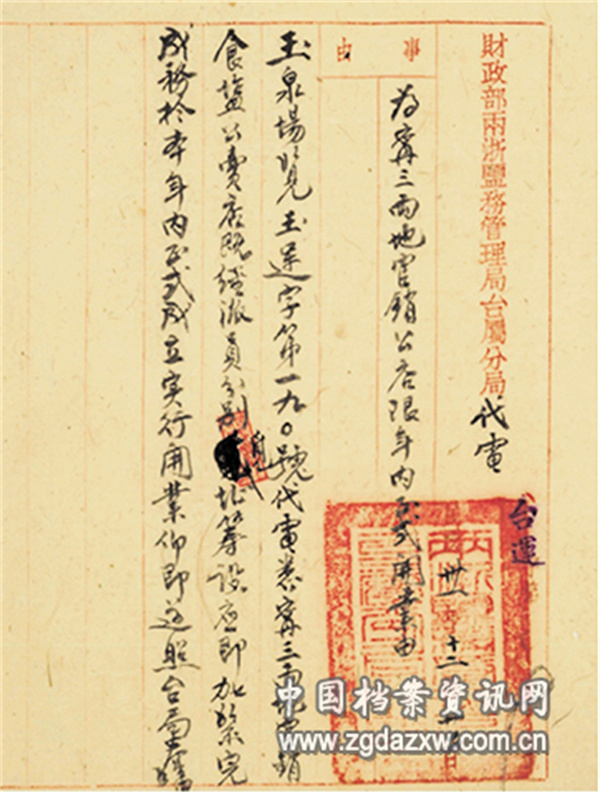 財政部兩浙鹽務管理局台屬分局代電
台運
卅 十二 日
事由
為寗三兩地官銷公店限年內正式開業由
玉泉場覽玉運字第一九〇號代電悉寗三兩地官銷
食鹽公賣店既經派員分別覓址籌設應即加緊完
成務於本年內正式成立实行開業仰即遵照台局
中国档案资讯网
www.zgdazxw.com.cn